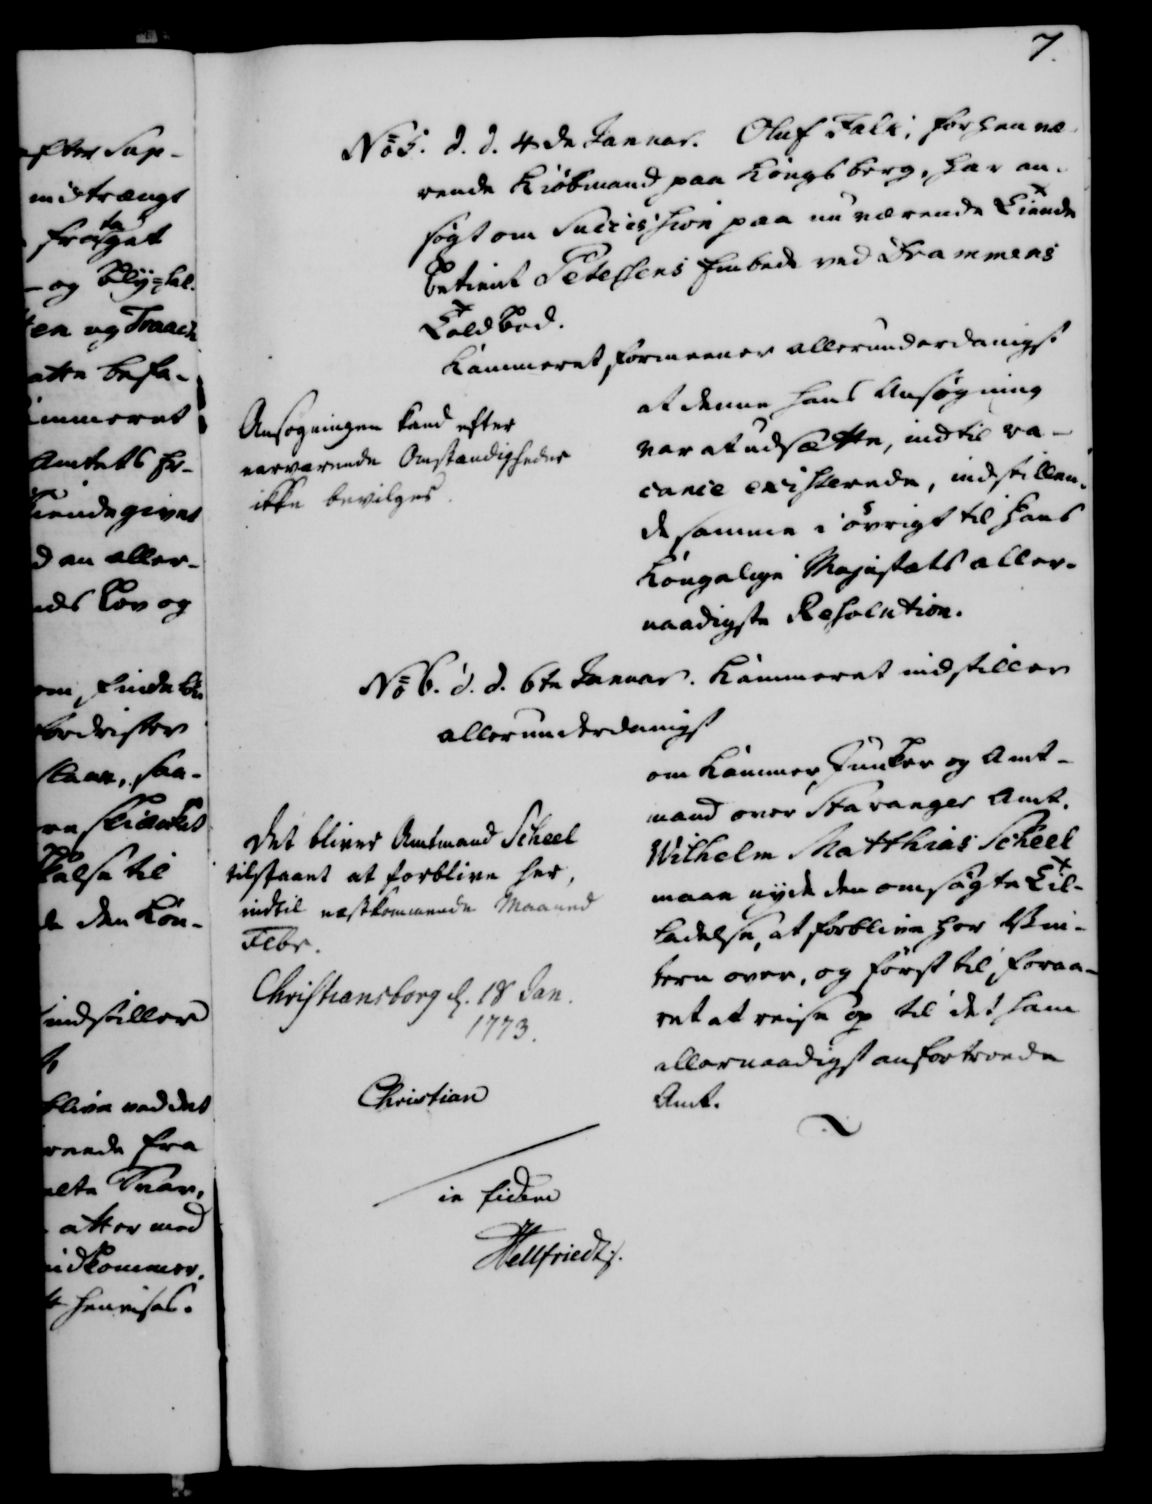 7.
No 5. d. d. 4de Januar. Oluf Falk, forhen væ-
rende Kiöbmand paa Kongsberg, har an-
søgt om Succession paa nu værende Tiende
betient Petersens Embede ved Drammens
Toldbod.
Kammeret formeener allerunderdanigst
at denne hans Ansøgning
var at udsætte, indtil va-
cance existerede, indstillen-
de samme i øvrigt til Hans
Kongelige Majestæts aller-
naadigste Resolution.
Ansøgningen kand efter
nærværende Omstændigheder
ikke bevilges.
No 6. d. d. 6te Januar. Kammeret indstiller
allerunderdanigst
om Kammer Junker og Amt-
mand over Stavanger Amt.
Wilhelm Matthias Scheel
maae nyde den omsøgte Til-
ladelse, at forblive her Vin-
teren over, og først til Foraa-
ret at reise op til det ham
allernaadigst anfortroede
Amt.
Det bliver Amtmand Scheel
tilstaaet at forblive her,
indtil næstkommende Maaned
Febr.
Christiansborg d. 18 Jan.
1773.
Christian
in fidem
Hellfriedt.
efter Sup-
mistrængt
og Bly-
en og Traad
atte befa-
ammeret
Amtets
iendegivet
d en aller-
nds Lov og
om, finde
fordrister
saa-
skianket
Palse til
de den Kon-
indstiller
blive ved det
rende fra
elte Svar,
atter med
indkommer,
henvises.